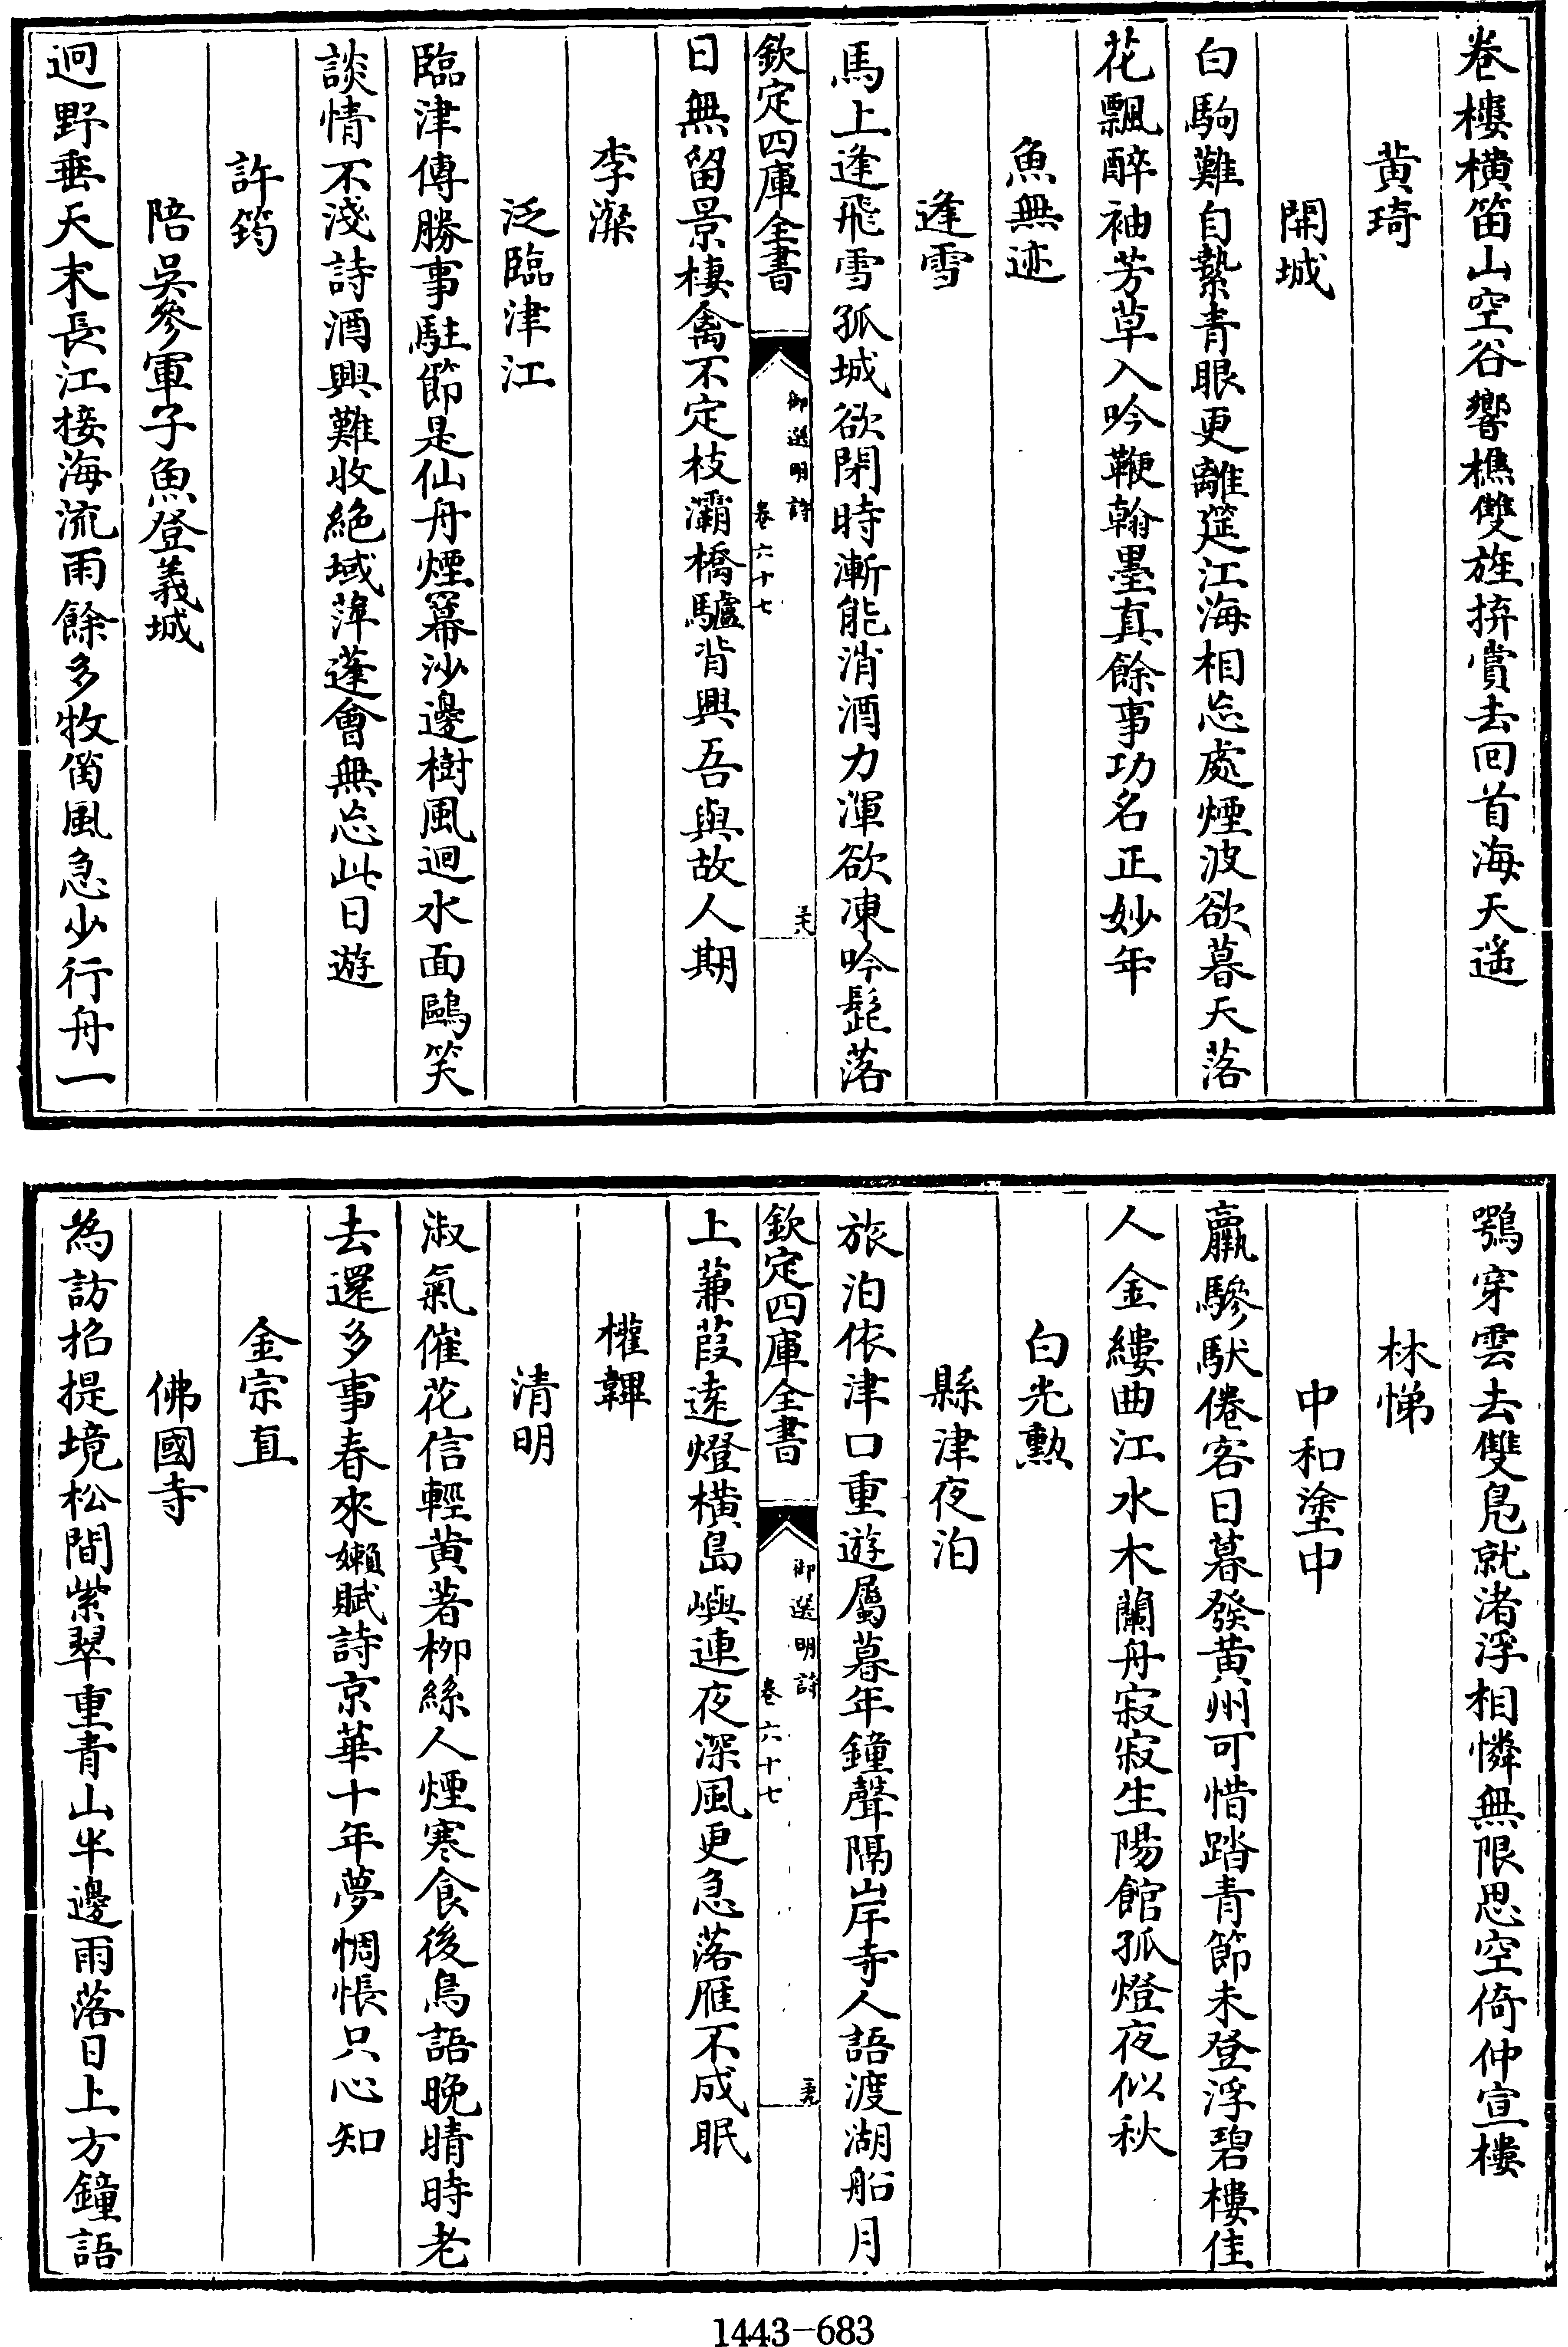 卷樓横笛山空谷響樵雙旌拚賞去回首海天遥
黄琦
開城
白駒難自縶青眼更離筵江海相忘處煙波欲暮天落
花飄醉袖芳草入吟鞭翰墨真餘事功名正妙年
魚無迹
逢雪
馬上逢飛雪孤城欲閉時漸能消酒力渾欲凍吟髭落
欽定四庫全書
御選明詩
卷六十七
日無留景棲禽不定枝灞橋驢背興吾與故人期
李澯
泛臨津江
臨津傳勝事駐節是仙舟煙羃沙邊樹風迴水面鷗笑
談情不淺詩酒興難收絶域萍蓬會無忘此日遊
許筠
陪吳參軍子魚登義城
迥野垂天末長江接海流雨餘多牧笛風急少行舟一
鶚穿雲去雙鳬就渚浮相憐無限思空倚仲宣樓
林悌
中和塗中
羸驂馱倦客日暮發黄州可惜踏青節未登浮碧樓佳
人金縷曲江水木蘭舟寂寂生陽館孤燈夜似秋
白光勲
縣津夜泊
旅泊依津口重遊屬暮年鐘聲隔岸寺人語渡湖船月
欽定四庫全書
御選明詩
卷六十七
上蒹葭遠燈橫島嶼連夜深風更急落雁不成眠
權韠
清明
淑氣催花信輕黄著柳絲人煙寒食後鳥語晚晴時老
去還多事春來嬾賦詩京華十年夢惆悵只心知
金宗直
佛國寺
為訪招提境松間紫翠重青山半邊雨落日上方鐘語
1443-683